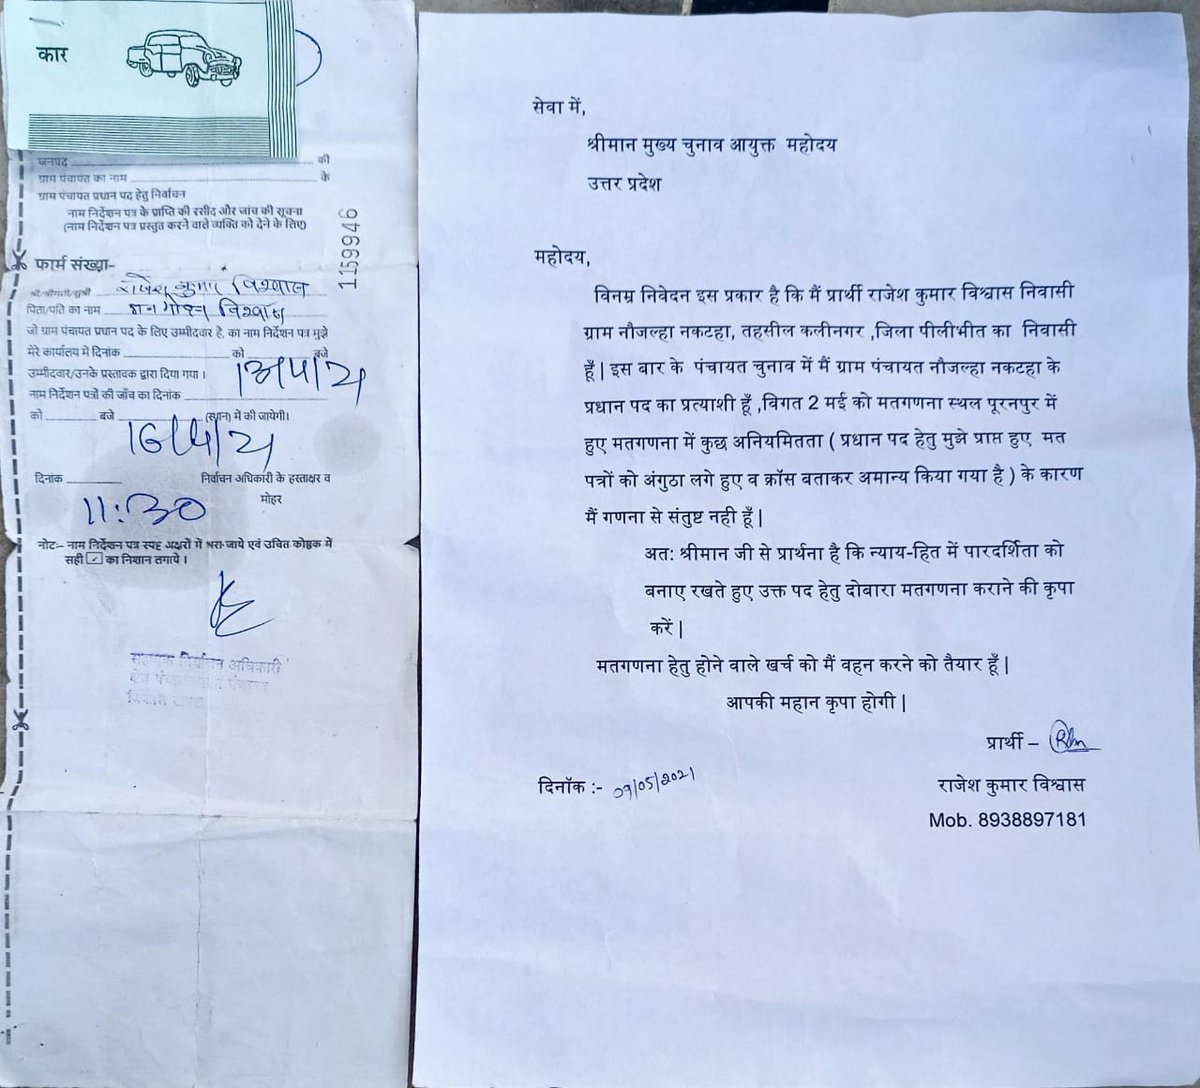 कार
जनपद की
ग्राम पंचायत का नाम के
ग्राम पंचायत प्रधान पद हेतु निर्वाचन
नाम निर्देशन पत्र के प्राप्ति की रसीद और जांच की सूचना
(नाम निर्देशन पत्र प्रस्तुत करने वाले व्यक्ति को देने के लिए)
1159946
फार्म संख्या-
श्री/श्रीमती/सुश्री राजेश कुमार विश्वास
पिता/पति का नाम विश्वास
जो ग्राम पंचायत प्रधान पद के लिए उम्मीदवार है, का नाम निर्देशन पत्र मुझे
मेरे कार्यालय में दिनांक को बजे
उम्मीदवार/उनके प्रस्तावक द्वारा दिया गया।
नाम निर्देशन पत्रों की जाँच का दिनांक
को बजे (स्थान) में की जायेगी।
दिनांक निर्वाचन अधिकारी के हस्ताक्षर व
मोहर
11:30
नोट:- नाम निर्देशन पत्र स्पष्ट अक्षरों में भरा जाये एवं उचित कोष्ठक में
सही का निशान लगाये।
निर्वाचन अधिकारी
सेवा में,
श्रीमान मुख्य चुनाव आयुक्त महोदय
उत्तर प्रदेश
महोदय,
विनम्र निवेदन इस प्रकार है कि मैं प्रार्थी राजेश कुमार विश्वास निवासी
ग्राम नौजल्हा नकटहा, तहसील कलीनगर ,जिला पीलीभीत का निवासी
हूँ| इस बार के पंचायत चुनाव में मैं ग्राम पंचायत नौजल्हा नकटहा के
प्रधान पद का प्रत्याशी हूँ ,विगत 2 मई को मतगणना स्थल पूरनपुर में
हुए मतगणना में कुछ अनियमितता ( प्रधान पद हेतु मुझे प्राप्त हुए मत
पत्रों को अंगुठा लगे हुए व क्रॉस बताकर अमान्य किया गया है ) के कारण
मैं गणना से संतुष्ट नही हूँ|
अत: श्रीमान जी से प्रार्थना है कि न्याय-हित में पारदर्शिता को
बनाए रखते हुए उक्त पद हेतु दोबारा मतगणना कराने की कृपा
करें|
मतगणना हेतु होने वाले खर्च को मैं वहन करने को तैयार हूँ|
आपकी महान कृपा होगी|
प्रार्थी –
दिनॉक :- 09/05/2021
राजेश कुमार विश्वास
Mob. 8938897181